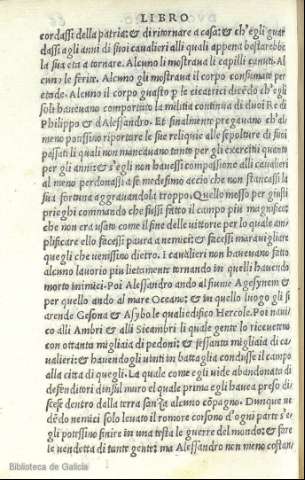 LIBRO
cordassi della patria: & di ritornare a casa: & ch'egli guar
dassi agli anni di suoi cavalieri alli quali appena bastarebbe
la sua eta a tornare. Alcuno li mostraua li capilli canuti. Al
cuno le ferite. Alcuno gli mostraua il corpo consumati per
etade. Alcuno il corpo guasto p le cicatrici dicēdo ch'egli
soli haueuano comportato la militia continua di duoi Re di
Philippo & d'Alessandro. Et finalmente pregauano ch'al
meno potissino riportare le sue reliquie alle sepolture di suoi
passati li quali non mancauano tanto per gli exerciti quanto
per gli anni: & s'egli non hauessi compassione alli caualieri
al meno perdonassi a se medesimo accio che non stancassi la
sua fortuna aggrauandola troppo. Quello messo per giusti
prieghi commando che fussi fatto il campo piu magnifico
che non era usato come il fine delle vittorie per lo quale am-
plificare ello facessi paura a nemici: & facessi marauigliare
quegli che venissino dietro. I caualieri non haueuano fatto
alcuno lauorio piu lietamente tornando in quelli hauendo
morto inimici. Poi Alessandro ando al fiume Agesynem &
per quello ando al mare Oceano: & in quello luogo gli si
arende Gesona & Asybo le quali edifico Hercole. Poi nani
co alli Ambri & alli Sicambri li quale gente lo riceuettno
con ottanta migliaia di pedoni: & sessanta migliaia di ca-
ualieri: & hauendogli uinti in battaglia condusse il campo
alla citta di quegli. La quale come egli vide abandonato di
defenditori d'insul muro el quale prima egli hauea preso di-
scese dentro della terra san̄za alcuno cōpagno. Dunque ue
dēdo nemici solo leuato il romore corsono d'ogni parte s'e-
gli potessino finire in una testa le guerre del mondo: & fare
le vendetta di tante genti: ma Alessandro non meno costan-
Biblioteca de Galicia